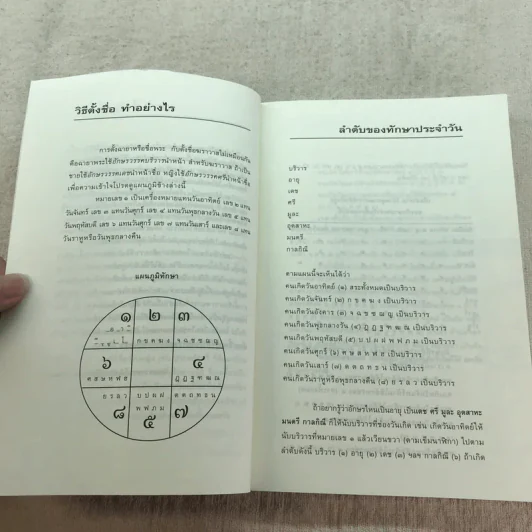 วิธีตั้งชื่อ ทำอย่างไร
การตั้งฉายาหรือชื่อพระ กับตั้งชื่อฆราวาสไม่เหมือนกัน
คือฉายาพระใช้อักษรวรรคบริวารนำหน้า สำหรับฆราวาส ถ้าเป็น
ชายใช้อักษรวรรคเดชนำหน้าชื่อ หญิงใช้อักษรวรรคศรีนำหน้าชื่อ
เพื่อความเข้าใจโปรดดูแผนภูมิข้างล่างนี้
หมายเลข ๑ เป็นเครื่องหมายแทนวันอาทิตย์ เลข ๒ แทน
วันจันทร์ เลข ๓ แทนวันอังคาร เลข ๔ แทนวันพุธกลางวัน เลข ๕ แทน
วันพฤหัสบดี เลข ๖ แทนวันศุกร์ เลข ๗ แทนวันเสาร์ และเลข ๘ แทน
วันราหูหรือวันพุธกลางคืน
แผนภูมิทักษา
๑ ๒ ๓
ก ข ค ฆ ง จ ฉ ช ซ ฌ ญ
๖ ๔
ศ ษ ส ห ฬ ฮ ฎ ฏ ฐ ฑ ฒ ณ
ย ร ล ว บ ป ผ ฝ ด ต ถ ท ธ น
พ ฟ ภ ม
๘ ๕ ๗
ลำดับของทักษาประจำวัน
บริวาร
อายุ
เดช
ศรี
มูละ
อุตสาหะ
มนตรี
กาลกิณี
ตามแผนนี้จะเห็นได้ว่า
คนเกิดวันอาทิตย์ (๑) สระทั้งหมดเป็นบริวาร
คนเกิดวันจันทร์ (๒) ก ข ค ฆ ง เป็นบริวาร
คนเกิดวันอังคาร (๓) จ ฉ ช ซ ฌ ญ เป็นบริวาร
คนเกิดวันพุธกลางวัน (๔) ฎ ฏ ฐ ฑ ฒ ณ เป็นบริวาร
คนเกิดวันพฤหัสบดี (๕) บ ป ผ ฝ พ ฟ ภ ม เป็นบริวาร
คนเกิดวันศุกร์ (๖) ศ ษ ส ห ฬ ฮ เป็นบริวาร
คนเกิดวันเสาร์ (๗) ด ต ถ ท ธ น เป็นบริวาร
คนเกิดวันราหูหรือพุธกลางคืน (๘) ย ร ล ว เป็นบริวาร
ถ้าอยากรู้ว่าอักษรไหนเป็นอายุ เป็นเดช ศรี มูละ อุตสาหะ
มนตรี กาลกิณี ก็ให้นับบริวารที่ช่องวันเกิด เช่น เกิดวันอาทิตย์ให้
นับบริวารที่หมายเลข ๑ แล้วเวียนขวา (ตามเข็มนาฬิกา) ไปตาม
ลำดับดังนี้ บริวาร (๑) อายุ (๒) เดช (๓) ฯลฯ กาลกิณี (๖) ถ้าเกิด